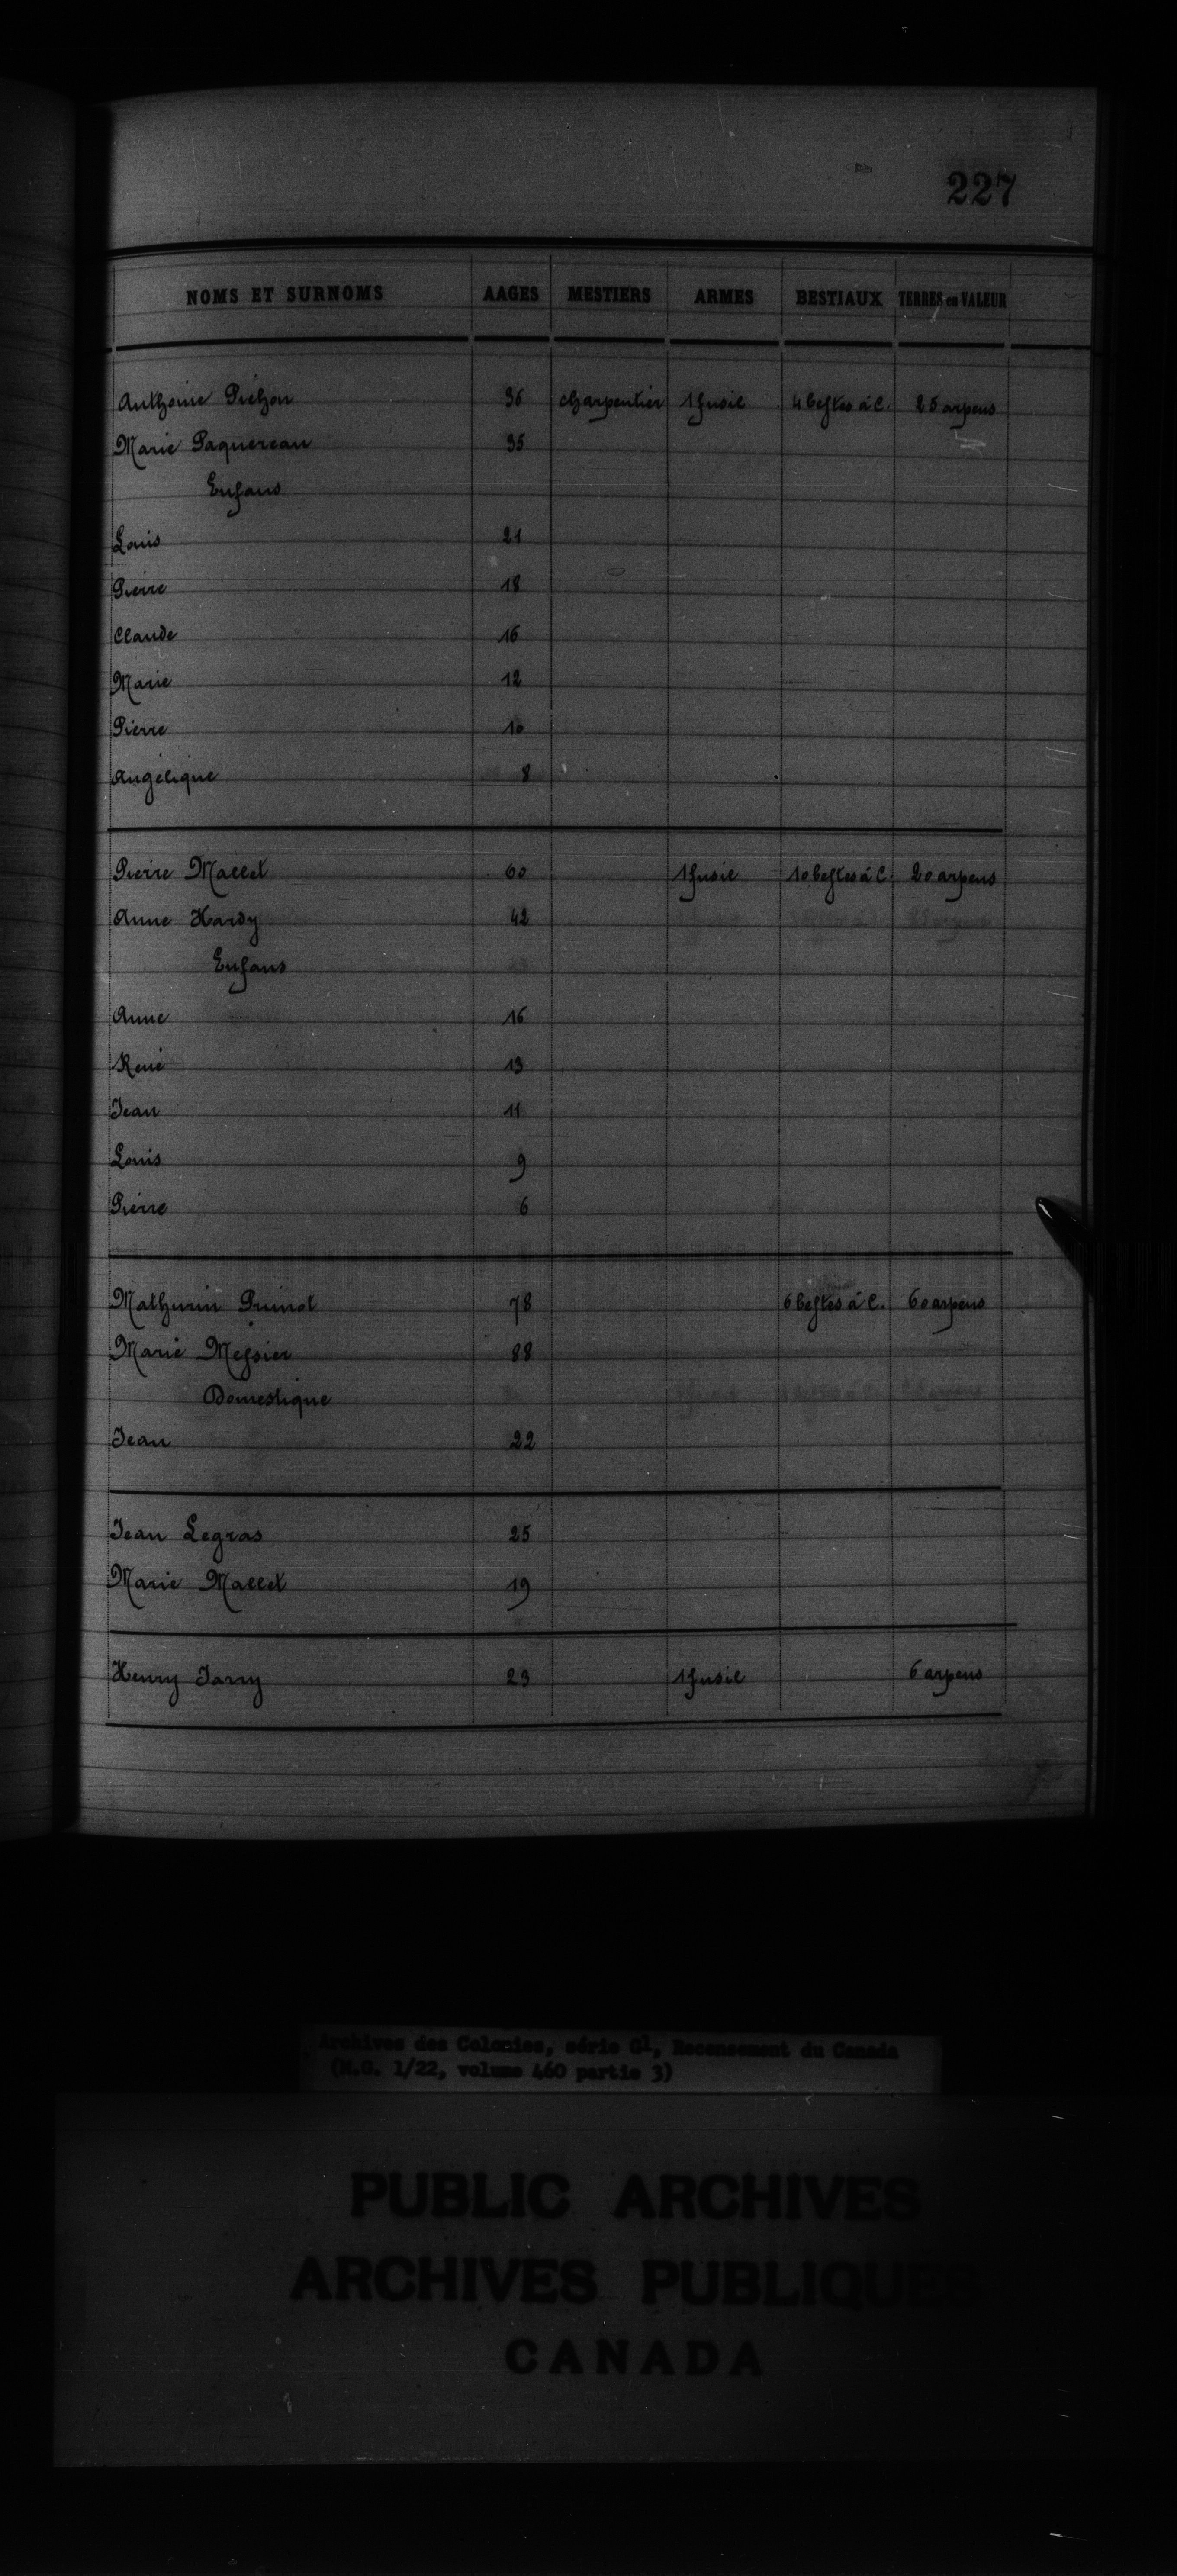 227
NOMS ET SURNOMS AAGES MESTIERS ARMES BESTIAUX TERRES en VALEUR
Anthoine Pichon 36 charpentier 1 fusil 4 bestes à C. 25 arpens
Marie Paquereau 35
Enfans
Louis 21
Pierre 18
Claude 16
Marie 12
Pierre 10
Angélique 8
Pierre Mallet 60 1 fusil 10 bestes à C. 20 arpens
Anne Hardy 42
Enfans
Anne 16
René 13
Jean 11
Louis 9
Pierre 6
Mathurin 78 6 bestes à C. 60 arpens
Marie Messier 88
Domestique
Jean 22
Jean Legras 25
Marie Mallet 19
Henry Jarry 23 1 fusil 6 arpens
Archives des Colonies, série G1, Recensement du Canada
(M.G. 1/22, volume 460 partie 3)
PUBLIC ARCHIVES
ARCHIVES PUBLIQUES
CANADA